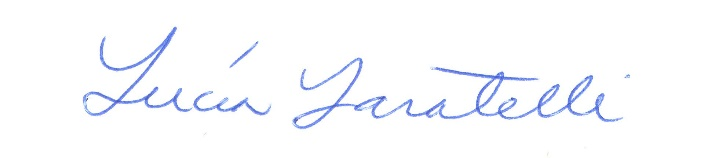 Lucía Laratelli